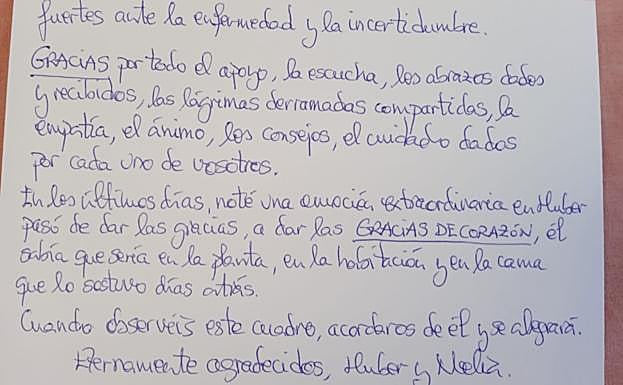 fuertes ante la enfermedad y la incertidumbre.
GRACIAS por todo el apoyo, la escucha, los abrazos dados
y recibidos, las lágrimas derramadas compartidas, la
empatía, el ánimo, los consejos, el cuidado dados
por cada uno de vosotros.
En los últimos días, noté una emoción extraordinaria en Huber
pasó de dar las gracias, a dar las GRACIAS DE CORAZÓN, él
sabía que sería en la planta, en la habitación y en la cama
que lo sostuvo días atrás.
Cuando observéis este cuadro, acordaros de él y se alegrará.
Eternamente agradecidos, Huber y Nelia.